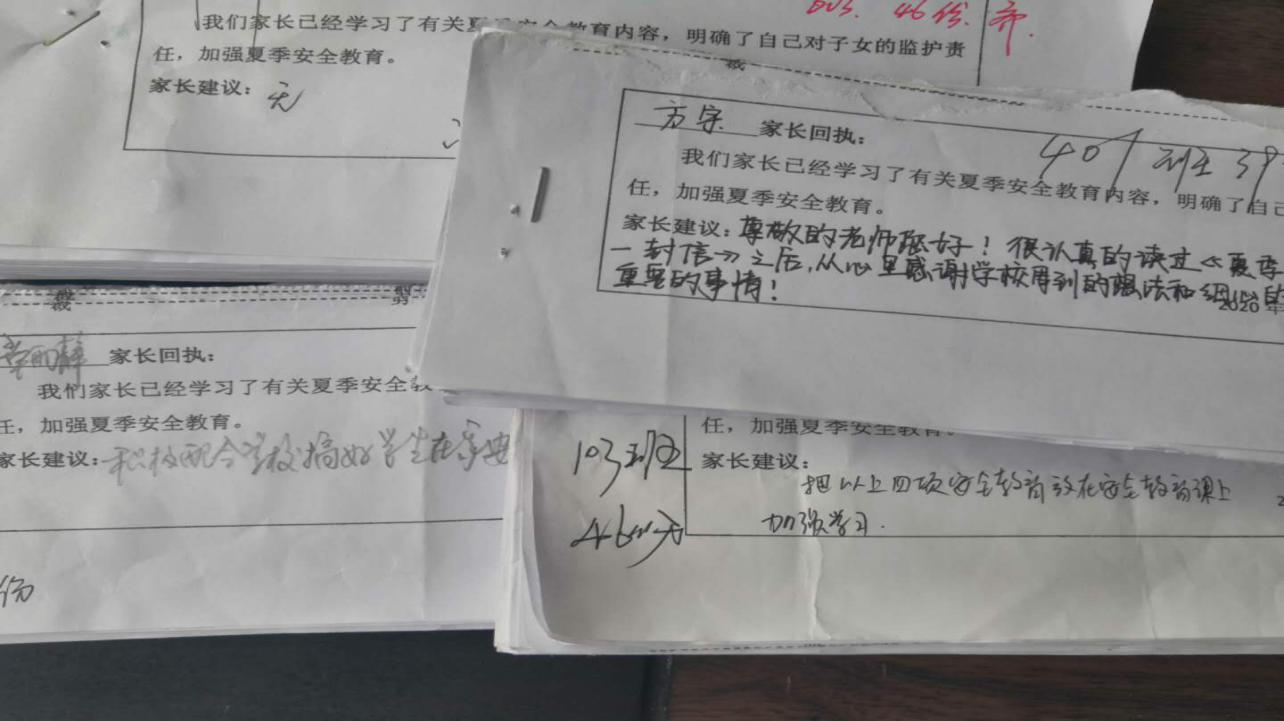 46份 齐.
我们家长已经学习了有关夏 教育内容，明确了自己对子女的监护责
任，加强夏季安全教育。
家长建议：无
裁
方宗 家长回执：
401 班 39
我们家长已经学习了有关夏季安全教育内容，明确了自己
任，加强夏季安全教育。
家长建议：尊敬的老师您好！很认真的读过《夏季
一封信》之后，从心里感谢学校周到的想法和细
重要的事情！
2020年
裁
家长回执：
我们家长已经学习了有关夏季安全教
任，加强夏季安全教育。
家长建议：积极配合学校搞好学生在家安
份
103班
46份
任，加强夏季安全教育。
家长建议：
把以上四项安全教育放在安全教育课上
加强学习.